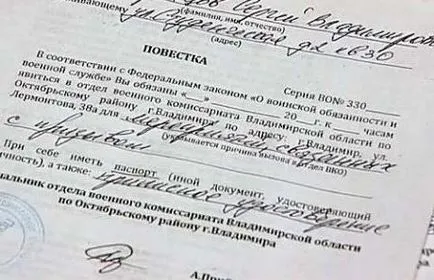 Сергей Владимиров
живающему
(фамилия, имя, отчество)
ул. Студенческая д2 кв30
(адрес)
ПОВЕСТКА
Серия ВО№ 330
В соответствии с Федеральным законом «О воинской обязанности и
военной службе» Вы обязаны «__» ______ 20__г. к ___ часам
явиться в отдел военного комиссариата Владимирской области по
Октябрьскому району г.Владимира по адресу: г.Владимир, ул.
Лермонтова, 38а для мероприятий, связанных
(указывается причина вызова в отдел ВКО)
с призывом
При себе иметь паспорт (иной документ, удостоверяющий
личность), а также: приписное удостоверение
чальник отдела военного комиссариата Владимирской области
по Октябрьскому району г.Владимира